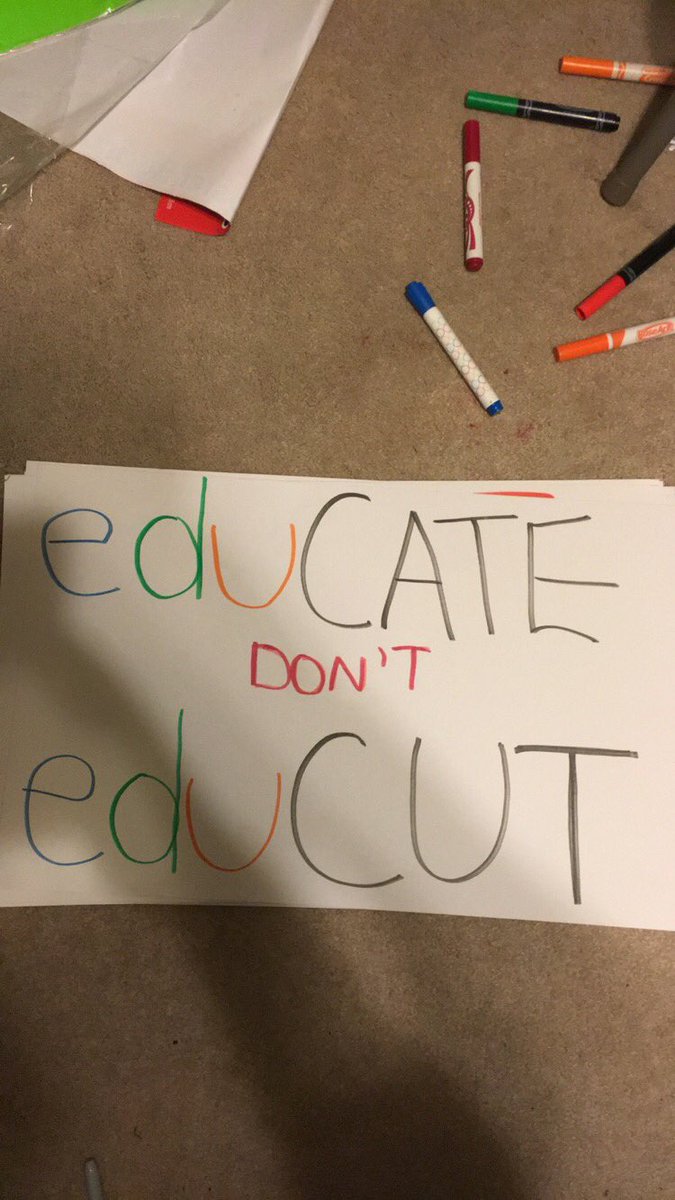 eduCATE
DON'T
eduCUT